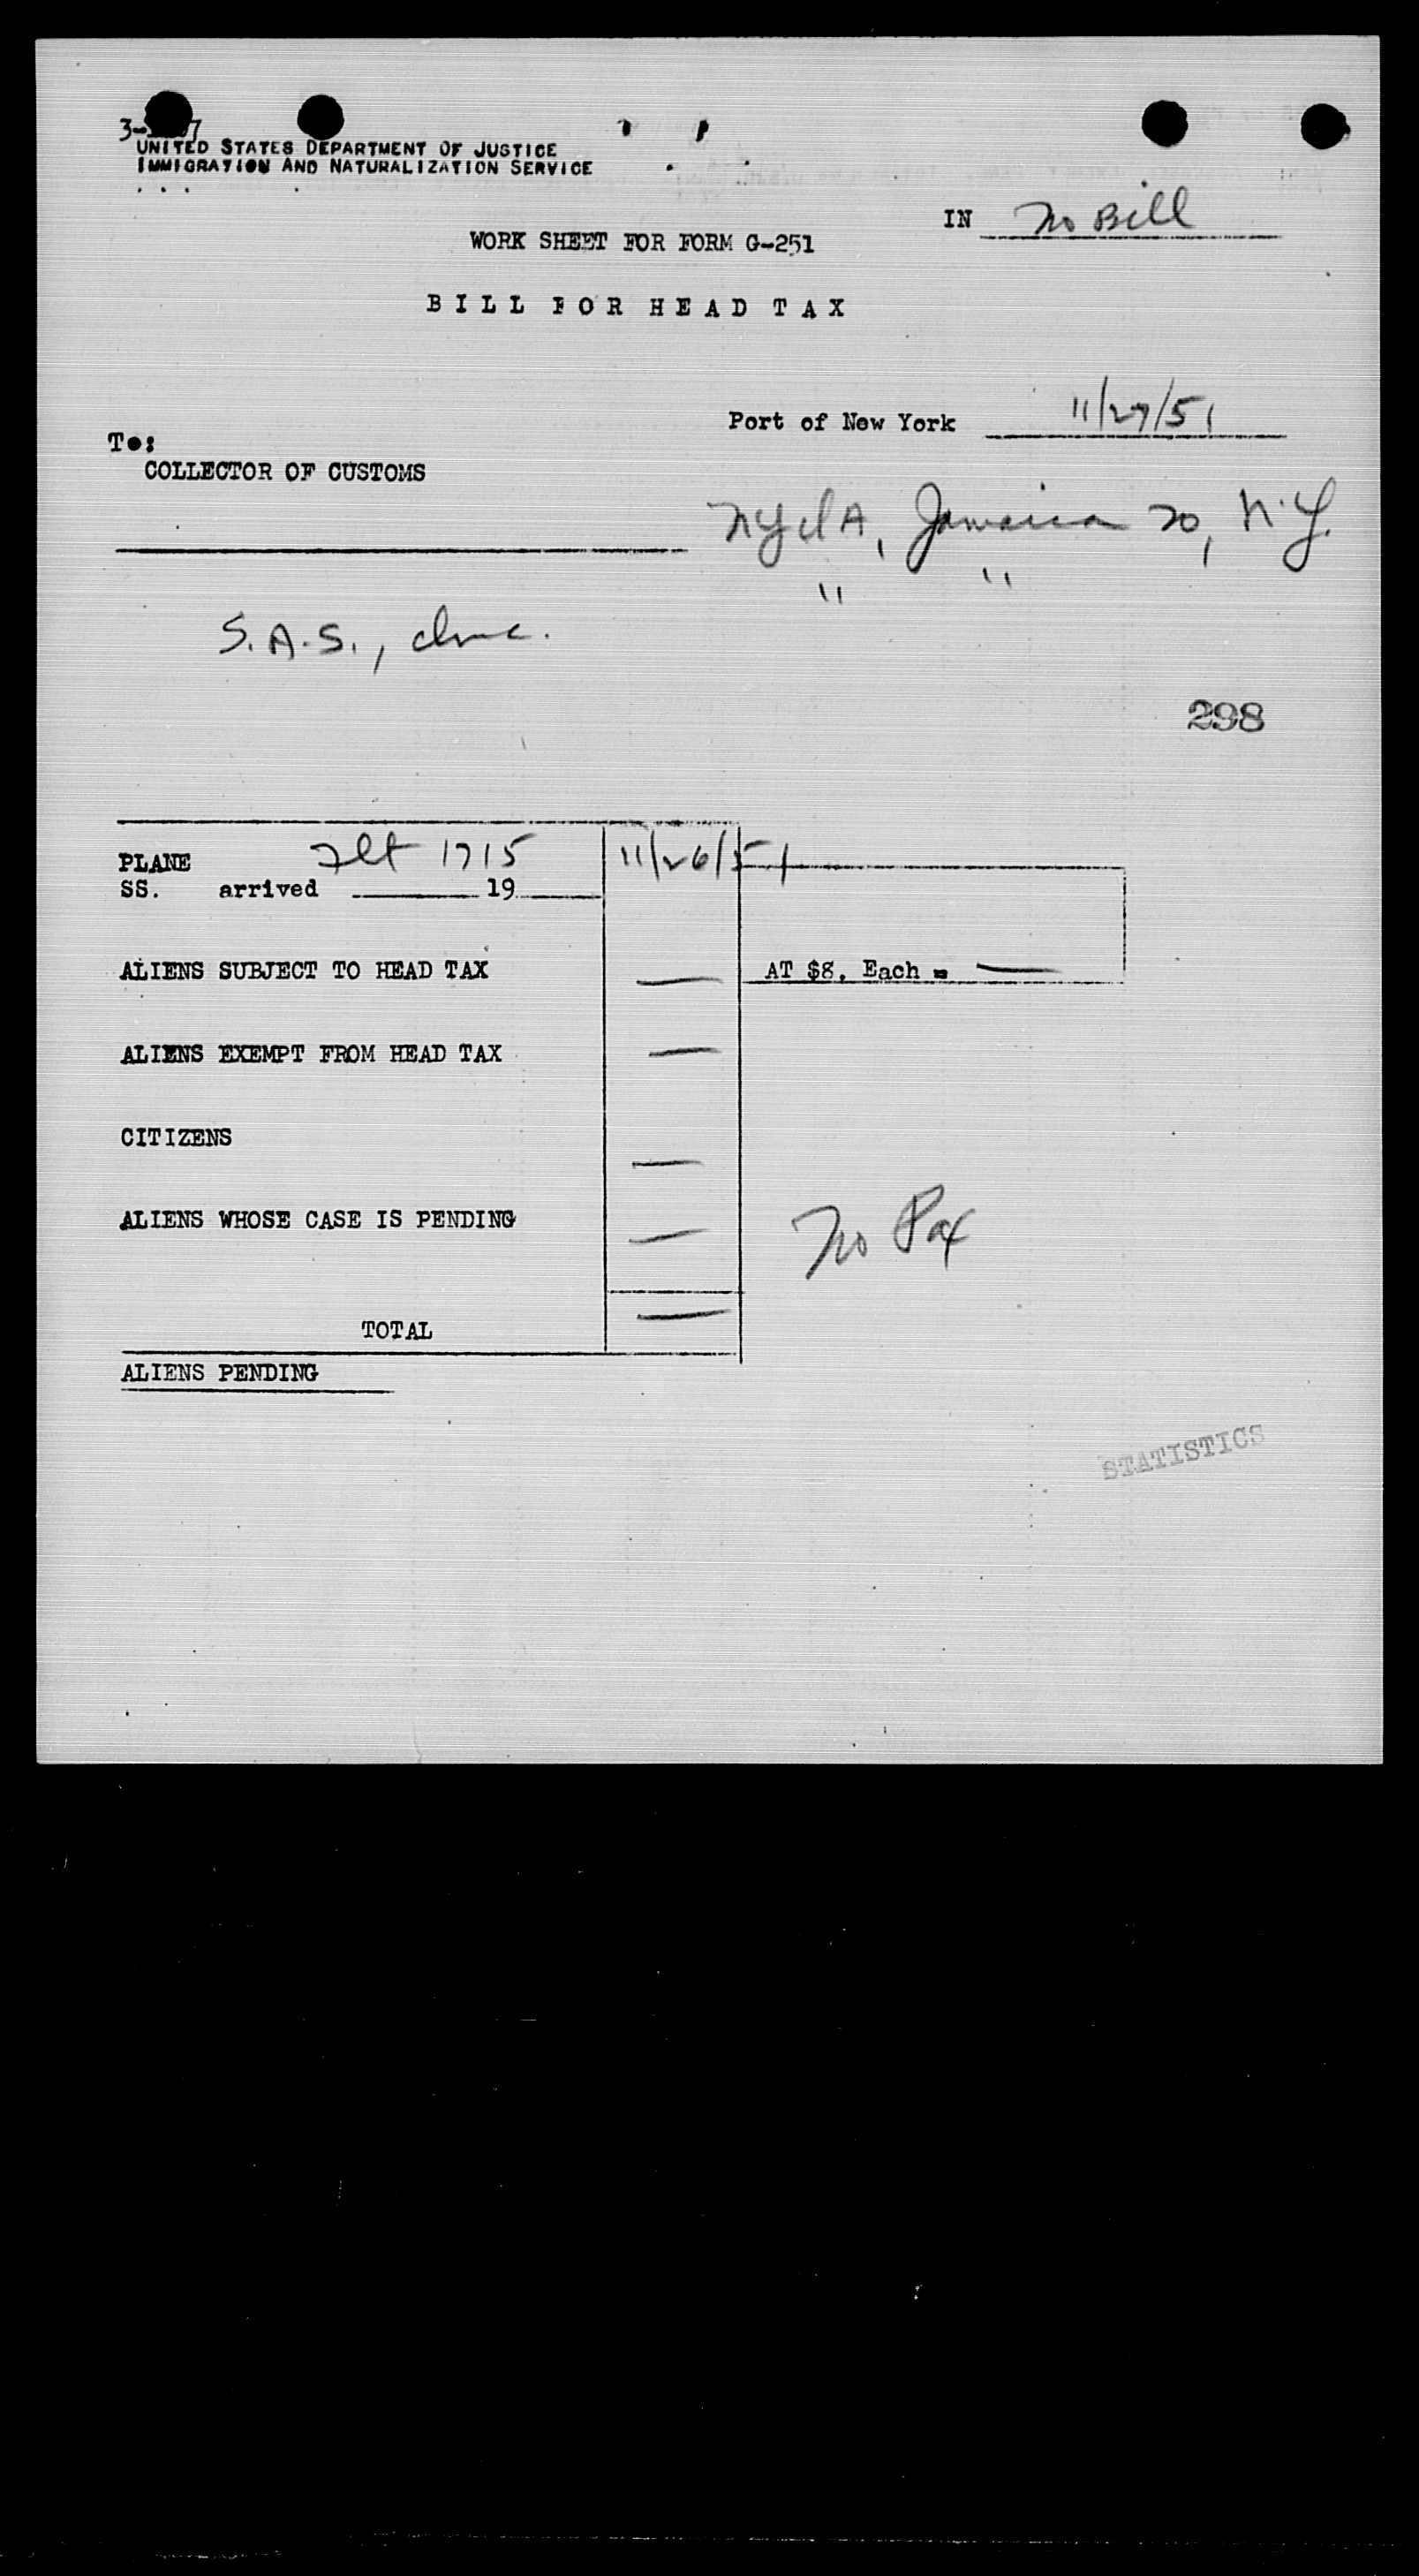 UNITED STATES DEPARTMENT OF JUSTICE
IMMIGRATION AND NATURALIZATION SERVICE
IN No Bill
WORK SHEET FOR FORM G-251
BILL FOR HEAD TAX
Port of New York 11/27/51
To:
COLLECTOR OF CUSTOMS
NYIA, Jamaica 20, N.Y.
" "
S.A.S., Inc.
298
PLANE Flt 1715 11/26/51
SS. arrived 19
ALIENS SUBJECT TO HEAD TAX — AT $8. Each = —
ALIENS EXEMPT FROM HEAD TAX —
CITIZENS —
ALIENS WHOSE CASE IS PENDING —
No Pax
TOTAL —
ALIENS PENDING
STATISTICS